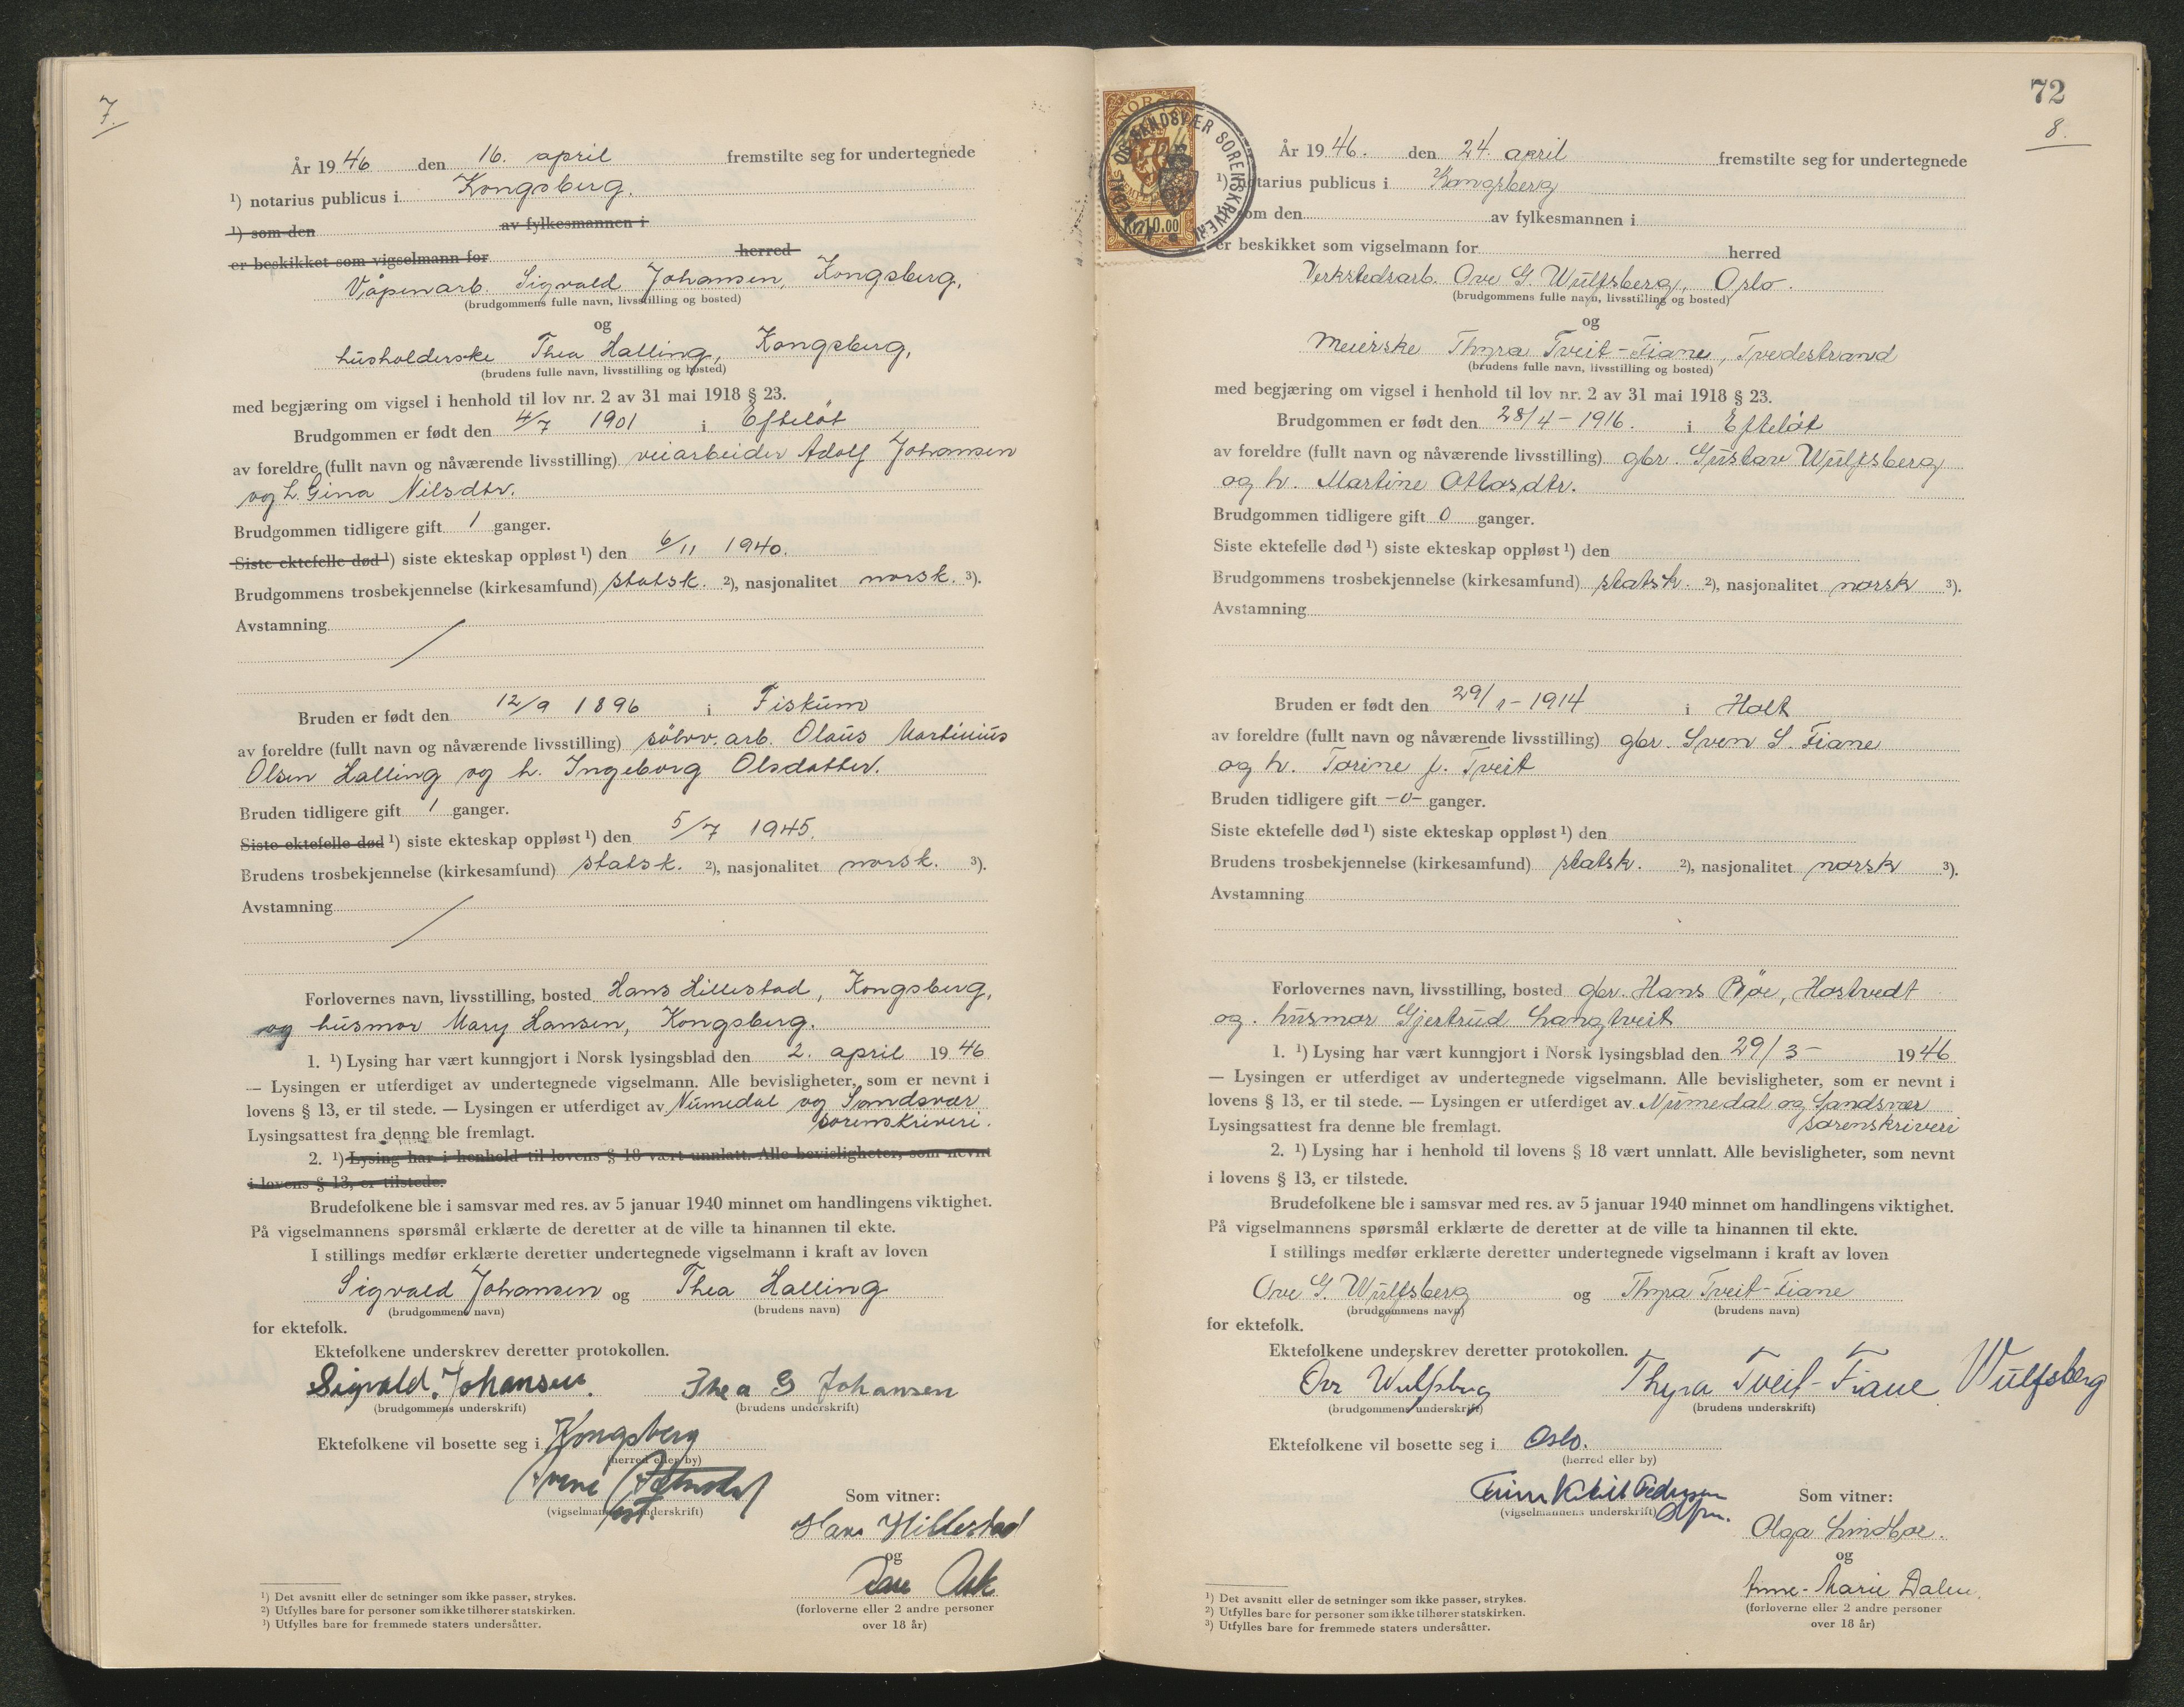 7.
År 1946 den 16. april fremstilte seg for undertegnede
¹) notarius publicus i Kongsberg.
¹) som den av fylkesmannen i
er beskikket som vigselmann for herred
Våpenarb. Sigvald Johansen, Kongsberg,
(brudgommens fulle navn, livsstilling og bosted)
og
husholderske Thea Halling, Kongsberg,
(brudens fulle navn, livsstilling og bosted)
med begjæring om vigsel i henhold til lov nr. 2 av 31 mai 1918 § 23.
Brudgommen er født den 4/7 1901 i Efteløt
av foreldre (fullt navn og nåværende livsstilling) veiarbeider Adolf Johansen
og h. Gina Nilsdtr.
Brudgommen tidligere gift 1 ganger.
Siste ektefelle død ¹) siste ekteskap oppløst ¹) den 6/11 1940.
Brudgommens trosbekjennelse (kirkesamfund) statsk. ²), nasjonalitet norsk. ³).
Avstamning /
Bruden er født den 12/9 1896 i Fiskum
av foreldre (fullt navn og nåværende livsstilling) sølvv. arb. Olaus Martinius
Olsen Halling og h. Ingeborg Olsdatter.
Bruden tidligere gift 1 ganger.
Siste ektefelle død ¹) siste ekteskap oppløst ¹) den 5/7 1945.
Brudens trosbekjennelse (kirkesamfund) statsk. ²), nasjonalitet norsk. ³).
Avstamning /
Forlovernes navn, livsstilling, bosted Hans Hillestad, Kongsberg,
og husmor Mary Hansen, Kongsberg.
1. ¹) Lysing har vært kunngjort i Norsk lysingsblad den 2. april 1946
— Lysingen er utferdiget av undertegnede vigselmann. Alle bevisligheter, som er nevnt i
lovens § 13, er til stede. — Lysingen er utferdiget av Numedal og Sandsvær
sorenskriveri.
Lysingsattest fra denne ble fremlagt.
2. ¹) Lysing har i henhold til lovens § 18 vært unnlatt. Alle bevisligheter, som nevnt
i lovens § 13, er tilstede.
Brudefolkene ble i samsvar med res. av 5 januar 1940 minnet om handlingens viktighet.
På vigselmannens spørsmål erklærte de deretter at de ville ta hinannen til ekte.
I stillings medfør erklærte deretter undertegnede vigselmann i kraft av loven
Sigvald Johansen og Thea Halling
(brudgommens navn) (brudens navn)
for ektefolk.
Ektefolkene underskrev deretter protokollen.
Sigvald Johansen. Thea G Johansen
(brudgommens underskrift) (brudens underskrift)
Ektefolkene vil bosette seg i Kongsberg
(herred eller by)
(vigselmannens underskrift)
Som vitner:
Hans Hillestad
og
Ask
(forloverne eller 2 andre personer
over 18 år)
¹) Det avsnitt eller de setninger som ikke passer, strykes.
²) Utfylles bare for personer som ikke tilhører statskirken.
³) Utfylles bare for fremmede staters undersåtter.
72
8.
NORGE
Kr. 10.00
NUMEDAL OG SANDSVÆR SORENSKRIVERI
År 1946. den 24. april fremstilte seg for undertegnede
¹) notarius publicus i Kongsberg
som den av fylkesmannen i
er beskikket som vigselmann for herred
Verkstedsarb. Ove G. Wulfsberg, Oslo.
(brudgommens fulle navn, livsstilling og bosted)
og
Meierske Thyra Tveit-Fiane, Tvedestrand
(brudens fulle navn, livsstilling og bosted)
med begjæring om vigsel i henhold til lov nr. 2 av 31 mai 1918 § 23.
Brudgommen er født den 28/4-1916. i Efteløt
av foreldre (fullt navn og nåværende livsstilling) gbr. Gustav Wulfsberg
og h. Martine Ottosdtr.
Brudgommen tidligere gift 0 ganger.
Siste ektefelle død ¹) siste ekteskap oppløst ¹) den
Brudgommens trosbekjennelse (kirkesamfund) statsk. ²), nasjonalitet norsk ³).
Avstamning
Bruden er født den 29/1-1914 i Holt
av foreldre (fullt navn og nåværende livsstilling) gbr. Sven S. Fiane
og h. Torine f. Tveit
Bruden tidligere gift -0- ganger.
Siste ektefelle død ¹) siste ekteskap oppløst ¹) den
Brudens trosbekjennelse (kirkesamfund) statsk. ²), nasjonalitet norsk ³).
Avstamning
Forlovernes navn, livsstilling, bosted gbr. Hans Bøe, Hostvedt
og. husmor Gjertrud Langtveit
1. ¹) Lysing har vært kunngjort i Norsk lysingsblad den 29/3- 1946
— Lysingen er utferdiget av undertegnede vigselmann. Alle bevisligheter, som er nevnt i
lovens § 13, er til stede. — Lysingen er utferdiget av Numedal og Sandsvær
sorenskriveri
Lysingsattest fra denne ble fremlagt.
2. ¹) Lysing har i henhold til lovens § 18 vært unnlatt. Alle bevisligheter, som nevnt
i lovens § 13, er tilstede.
Brudefolkene ble i samsvar med res. av 5 januar 1940 minnet om handlingens viktighet.
På vigselmannens spørsmål erklærte de deretter at de ville ta hinannen til ekte.
I stillings medfør erklærte deretter undertegnede vigselmann i kraft av loven
Ove G. Wulfsberg og Thyra Tveit-Fiane
(brudgommens navn) (brudens navn)
for ektefolk.
Ektefolkene underskrev deretter protokollen.
Ove Wulfsberg Thyra Tveit-Fiane Wulfsberg
(brudgommens underskrift) (brudens underskrift)
Ektefolkene vil bosette seg i Oslo.
(herred eller by)
(vigselmannens underskrift)
Som vitner:
Olga Lindboe.
og
Anne-Marie Dalen.
(forloverne eller 2 andre personer
over 18 år)
¹) Det avsnitt eller de setninger som ikke passer, strykes.
²) Utfylles bare for personer som ikke tilhører statskirken.
³) Utfylles bare for fremmede staters undersåtter.